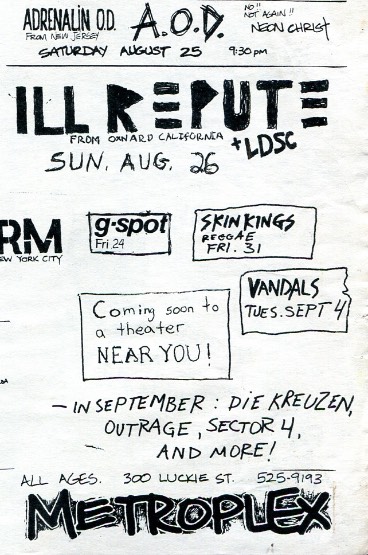 ADRENALIN O.D.
FROM NEW JERSEY
A.O.D.
NO!!
NOT AGAIN!!
NEON CHRIST
SATURDAY AUGUST 25 9:30 pm
ILL REPUTE
FROM OXNARD CALIFORNIA
+ LDSC
SUN. AUG. 26
RM
EW YORK CITY
g-spot
Fri. 24
SKIN KINGS
REGGAE
FRI. 31
VANDALS
TUES. SEPT 4
Coming soon to
a theater
NEAR YOU!
- IN SEPTEMBER : DIE KREUZEN,
OUTRAGE, SECTOR 4,
AND MORE!
ALL AGES. 300 LUCKIE ST. 525-9193
METROPLEX